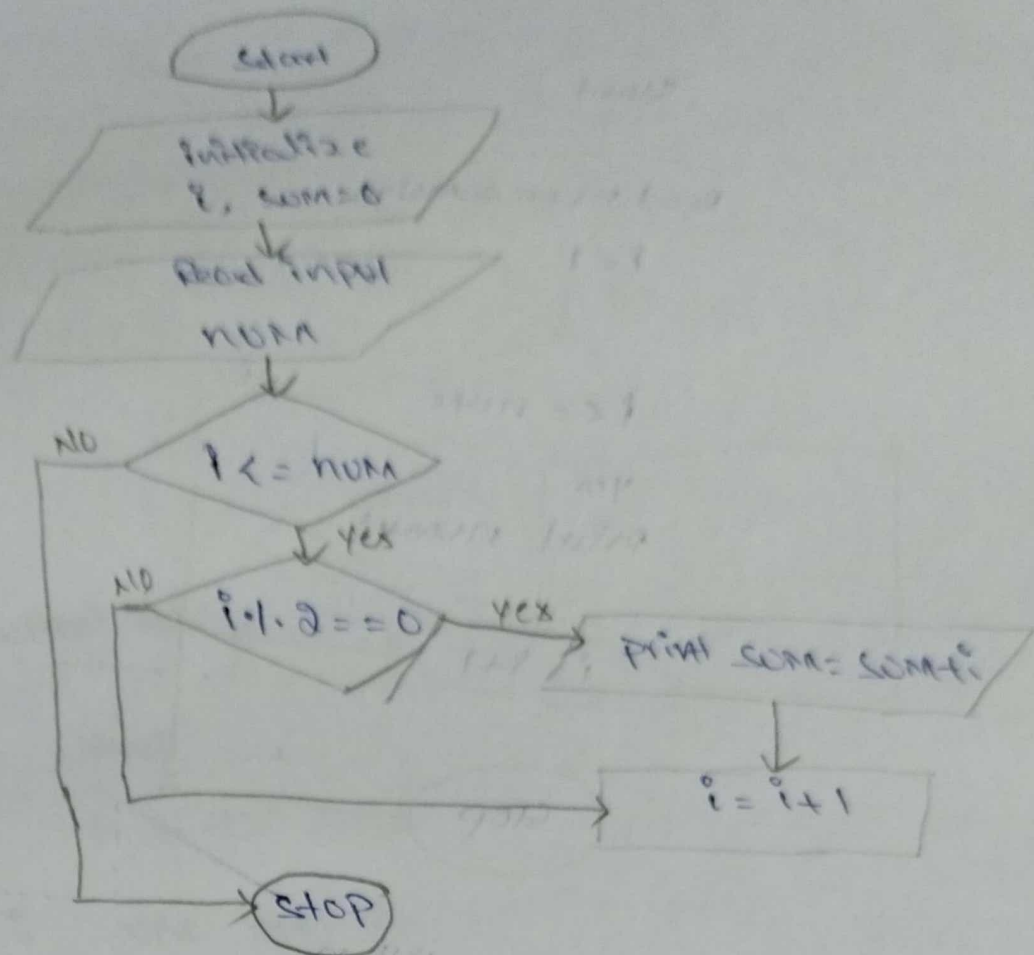 Start
initialize
i, sum=0
Read input
num
NO
i <= num
yes
NO
i % 2 == 0
yes
print sum = sum+i
i = i+1
stop